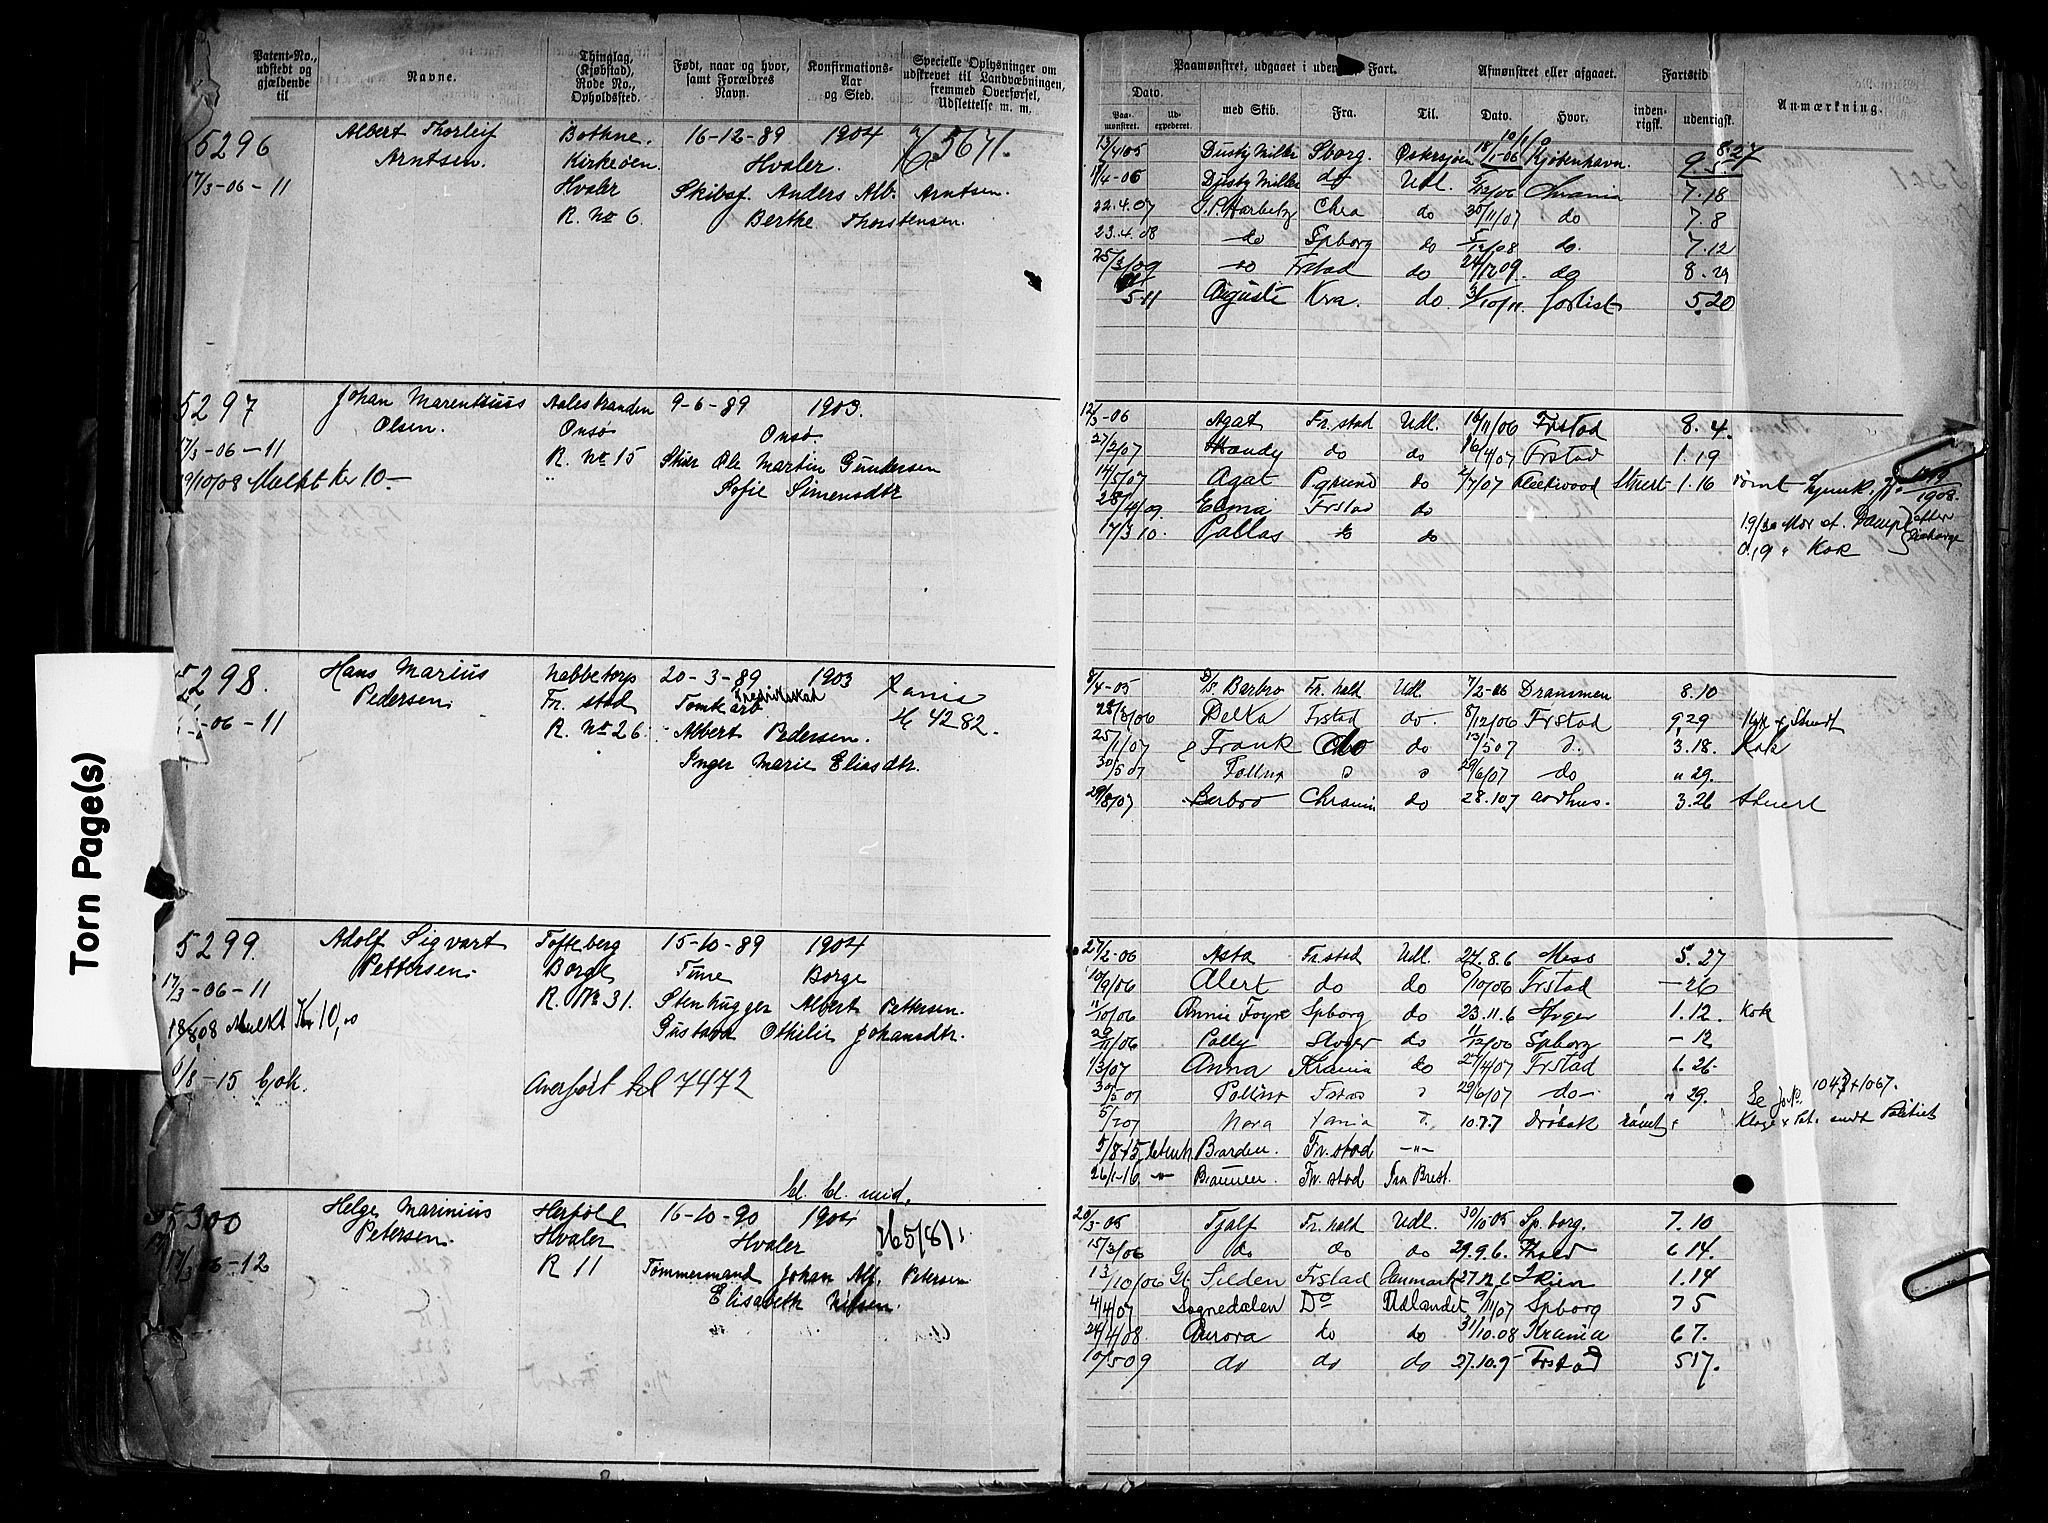 Torn Page(s)
Patent-No., udstedt og gjældende til
Navne.
Thinglag, (Kjøbstad), Rode No., Opholdssted.
Født, naar og hvor, samt Forældres Navn.
Konfirmations-Aar og Sted.
Specielle Oplysninger om udskrevet til Landvæbningen, fremmed Overførsel, Udslettelse m. m.
Paamønstret, udgaaet i udenrigsk Fart.
Afmønstret eller afgaaet.
Fartstid
Anmærkning.
Dato.
Paamønstret.
Udexpederet.
med Skib.
Fra.
Til.
Dato.
Hvor.
indenrigsk.
udenrigsk.
5296 Albert Thorleif Bothne. 16-12-89 1904 5671.
Arntsen. Kirkeøen Hvaler.
17/3-06-11 Hvaler Skibsf. Anders Alb. Arntsen.
R. No 6. Berthe Thorstensen.
13/4 05 Dusty Miller Sborg. Østersjøen 18/1-06 Kjøbenhavn. 8.27
11/4-06 Dusty Miller do Udl. 5/12/06 7.18
22.4.07 Chra do 30/11/07 do 7.8
23.4.08 do Spborg do 5/12/08 do. 7.12
25/3/09 do Frstad do 24/12 09. do 8.29
5 11 Auguste Kra. do 3/10/11. forlist 5.20
5297 Johan Marentius Aalestranden 9-6-89 1903.
Olsen. Onsø Onsø
17/3-06-11 R. No 15 Skibr Ole Martin Gundersen
9/10/08 Mulkt kr 10- Sofie Simensdtr
12/3-06 Agat Fr.stad Udl. 16/11/06 Frstad 8.4.
27/2/07 Handy do do 16/4/07 Frstad 1.19
14/5/07 Agat Pgrund do 2/7/07 Fleetwood Stuert 1.16 rømt
28/4/09 Elma Frstad do
17/3 10. Pallas do do
Kok
5298. Hans Marius Nabbetorp 20-3-89 1903
Pedersen. Fr. stad Fredrikstad
-06-11 R. No 26. Albert Pedersen. 4282.
Inger Marie Eliasdtr.
8/4-05 D/S. Barbro Fr. hald Udl. 7/2-06 Drammen 8.10
28/3/06 Delka Frstad do 8/12/06 Frstad 9.29
25/1/07 Frank do do 13/5 07 3.18. Kok
30/5 07 29/6/07 do " 29.
29/8/07 Barbro Chrania do 28.10 7 aarhus. 3.26 Stuert
5299. Adolf Sigvart Tofteberg 15-10-89 1904
Pettersen. Borge Tune Borge
17/3-06-11 R. No 31. Stenhugger Albert Pettersen.
18/8 08 Mulkt Kr 10,00 Gustava Othilie Johansdtr.
/8-15 bok. Overført til 7472
27/2-06 Asta Frstad Udl. 24.8.6 Moss 5.27
10/9/06 Alert do do 6/10/06 Frstad -26
11/10/06 Annie Foyn Spborg do 23.11.6 1.12. Kok
29/11/06 Polly do 11/12/06 Spborg -12
1/3/07 Anna Krania do 27/4/07 Frstad 1.26.
30/5 07 29/6/07 do " 29.
5/7 07 Nora 10.7.7 Drøbak rømt
5/8-15 Barden. Fr.stad
26/1-16 Fr.stad Fra Brest.
5300 Helge Marinius Herføl 16-10-90 1904
Petersen. Hvaler Hvaler
17/3-06-12 R 11 Tømmermand Johan Alf. Petersen
Elisabeth Nilsen.
20/3-05 Tjalf Fr.hald Udl. 30/10 05 Sp.borg. 7.10
15/3/06 do do do 29.9.6. 6 14.
13/10/06 Gl Selden Frstad Danmark 27.12.6 Skien 1.14
4/4/07 Sognedalen Do Udlandet 9/11/07 Spborg 7 5
24/4/08 Aurora do do 31/10.08 Krania 6 7.
10/5 09 do do do 27.10.9 Frstad 5 17.